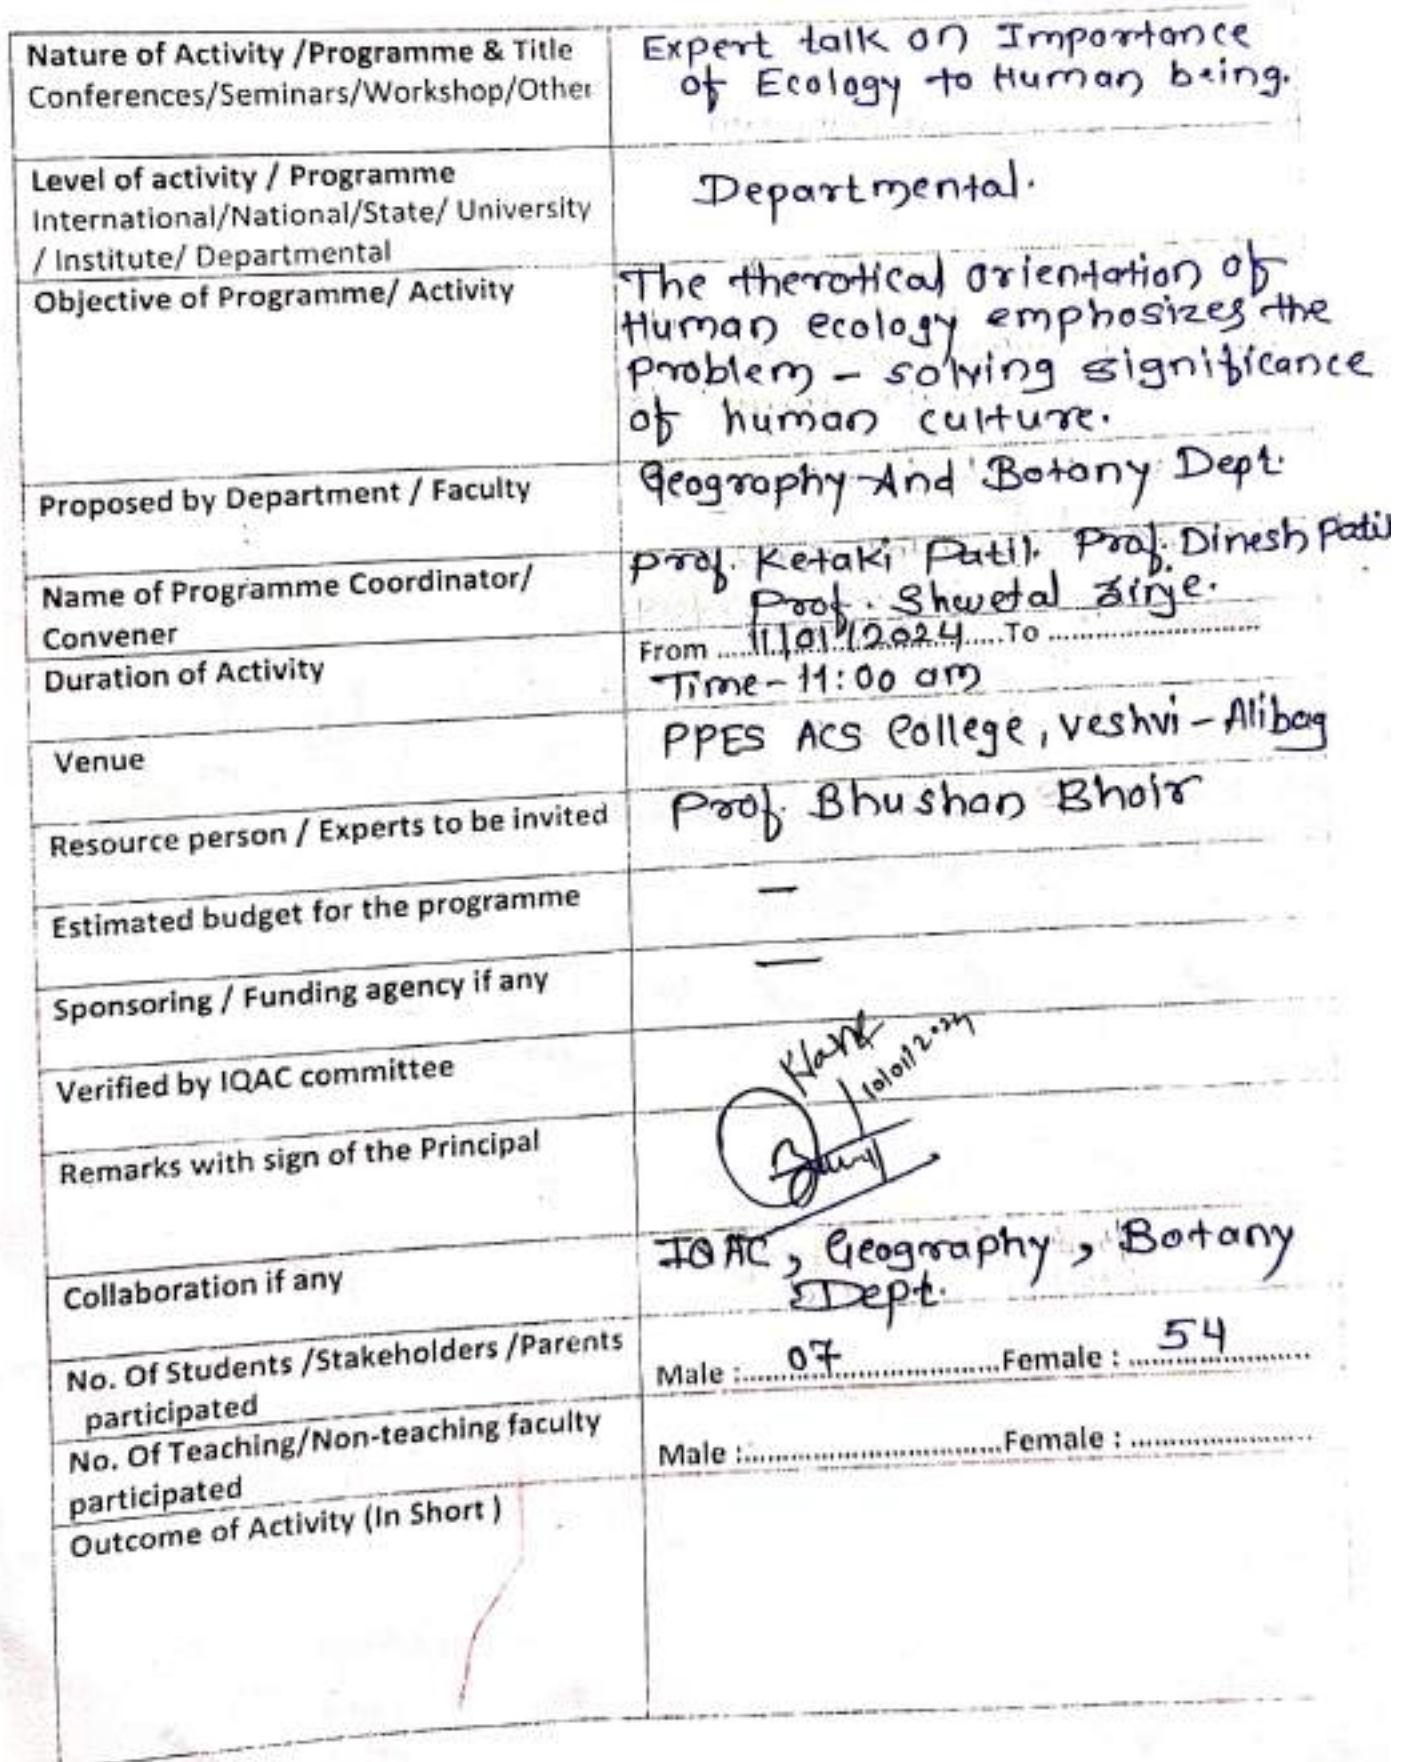 Nature of Activity /Programme & Title
Conferences/Seminars/Workshop/Other
Expert talk on Importance
of Ecology to Human being.
Level of activity / Programme
International/National/State/ University
/ Institute/ Departmental
Departmental.
Objective of Programme/ Activity
The therotical orientation of
Human ecology emphosizes the
problem - solving significance
of human culture.
Proposed by Department / Faculty
Geography And Botany Dept.
Name of Programme Coordinator/
Convener
Prof. Ketaki Patil. Prof. Dinesh Patil
Prof. Shwetal
Duration of Activity
From 11/01/2024 To
Time - 11:00 am
Venue
PPES ACS College, Veshvi - Alibag
Resource person / Experts to be invited
Prof. Bhushan Bhoir
Estimated budget for the programme
—
Sponsoring / Funding agency if any
—
Verified by IQAC committee
10/01/2024
Remarks with sign of the Principal
Collaboration if any
IQAC, Geography, Botany
Dept.
No. Of Students /Stakeholders /Parents
participated
Male : 07 Female : 54
No. Of Teaching/Non-teaching faculty
participated
Male : Female :
Outcome of Activity (In Short )